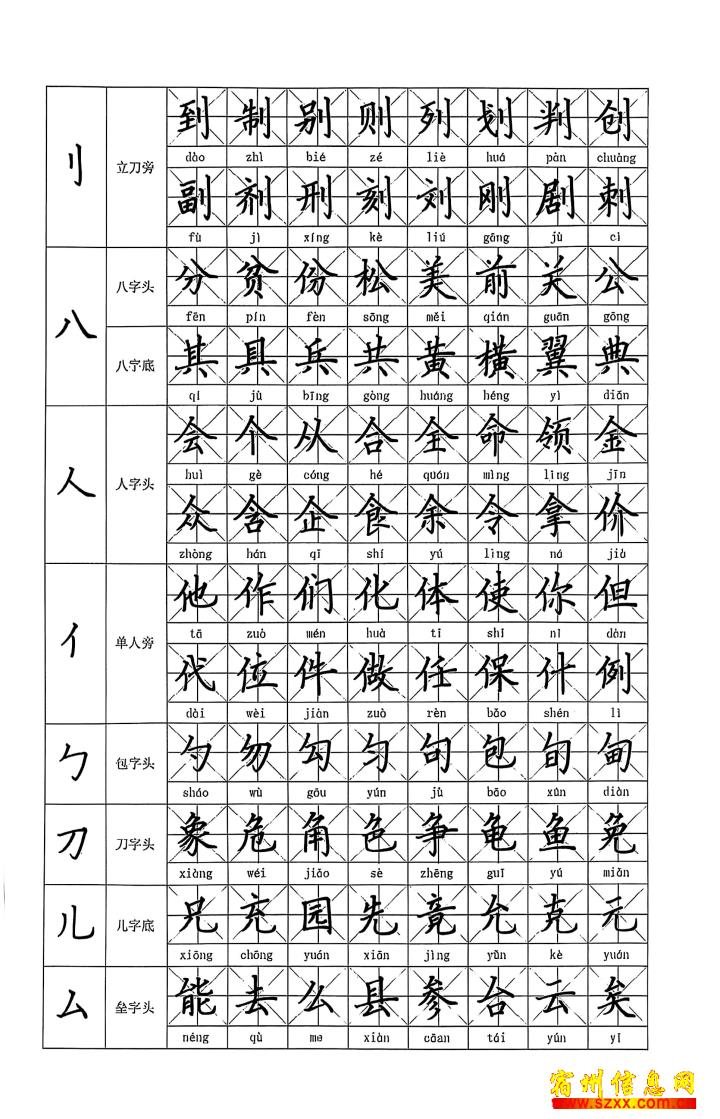 刂 立刀旁
到 制 别 则 列 划 判 创
dào zhì bié zé liè huá pàn chuàng
副 剂 刑 刻 刘 刚 剧 刺
fù jì xíng kè liú gāng jù cì
八 八字头
分 贫 份 松 美 前 关 公
fēn pín fèn sōng měi qián guān gōng
八字底
其 具 兵 共 黄 横 翼 典
qí jù bīng gòng huáng héng yì diǎn
人 人字头
会 个 从 合 全 命 领 金
huì gè cóng hé quán mìng lǐng jīn
众 含 企 食 余 令 拿 价
zhòng hán qǐ shí yú lìng ná jià
亻 单人旁
他 作 们 化 体 使 你 但
tā zuò mén huà tǐ shǐ nǐ dàn
代 位 件 做 任 保 什 例
dài wèi jiàn zuò rèn bǎo shén lì
勹 包字头
勺 勿 勾 匀 句 包 旬 甸
sháo wù gōu yún jù bāo xún diàn
刀 刀字头
象 危 角 色 争 龟 鱼 免
xiàng wéi jiǎo sè zhēng guī yú miǎn
儿 儿字底
兄 充 园 先 竟 允 克 元
xiōng chōng yuán xiān jìng yǔn kè yuán
厶 垒字头
能 去 么 县 参 台 云 矣
néng qù me xiàn cān tái yún yǐ
宿州信息网
www.szxx.com.cn